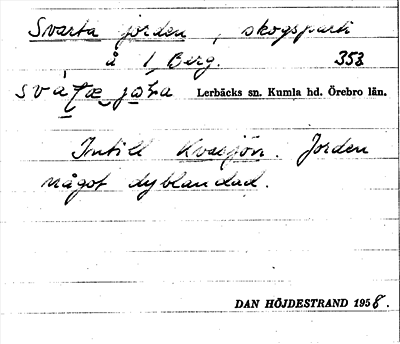 Svarta jorden, skogsparti
å 1, Berg. 353
Lerbäcks sn. Kumla hd. Örebro län.
Intill Kvasjön. Jorden
något dyblandad.
DAN HÖJDESTRAND 1958.